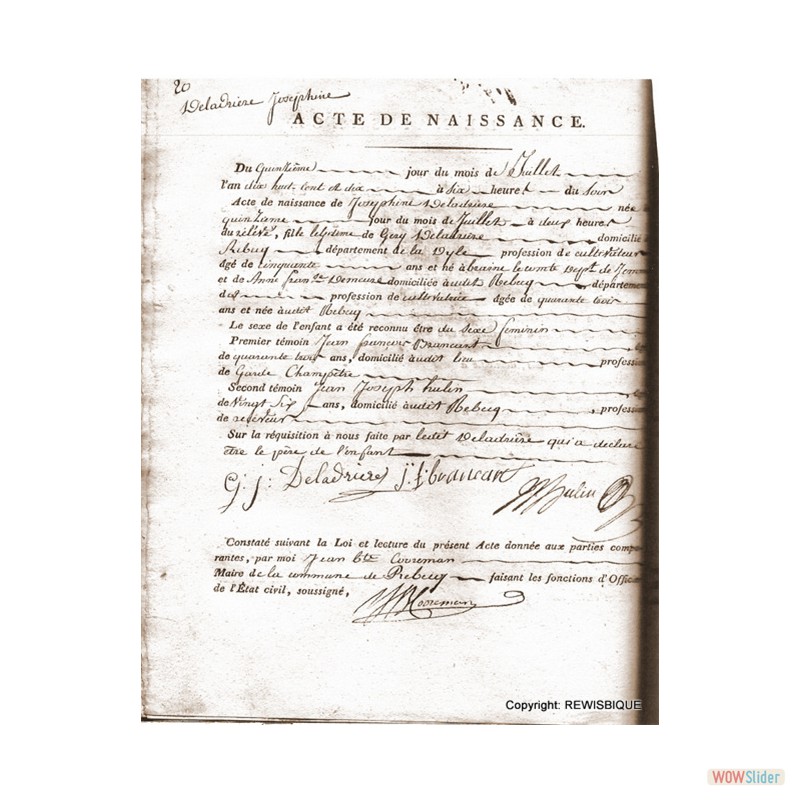 20
Deladriere Josephine
ACTE DE NAISSANCE.
Du Quinzième jour du mois de Juillet
l'an dix huit cent et dix à six heures du soir
Acte de naissance de Josephine Deladriere née
quinzame jour du mois de Juillet à deux heures
du relevé, fille legitime de Deladriere domicilié à
Rebecq département de la Dyle profession de cultivateur
âgé de cinquante ans et né à braine le comte Dept. de Jem
et de Anne domiciliée audit Rebecq département
de profession de cultivatrice âgée de quarante trois
ans et née audit Rebecq
Le sexe de l'enfant a été reconnu être du sexe feminin
Premier témoin Jean francois Brancart
de quarante trois ans, domicilié audit lieu profession
de Garde Champêtre
Second témoin Jean Joseph hulin
de Vingt Six ans, domicilié audit Rebecq profession
de receveur
Sur la réquisition à nous faite par ledit Deladriere qui a declaré
etre le père de l'enfant
G: j: Deladriere j: f: brancart
hulin
Constaté suivant la Loi et lecture du présent Acte donnée aux parties compa-
rantes, par moi Jean bte Cooreman
Maire de la commune de Rebecq faisant les fonctions d'Officier
de l'État civil, soussigné,
Cooreman
Copyright: REWISBIQUE
WOWSlider